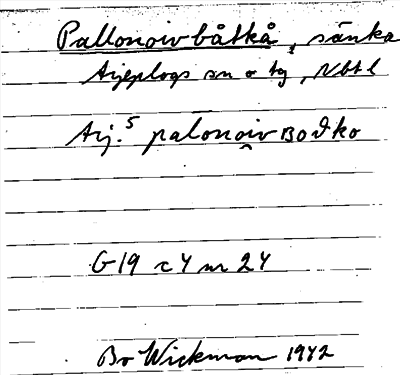 Pallonoivbåtkå, sänka
Arjeplogs sn o tg, Nbt l
Arj.⁵ palonoiv Boϑko
G 19 c 4 nr 24
Bo Wickman 1942